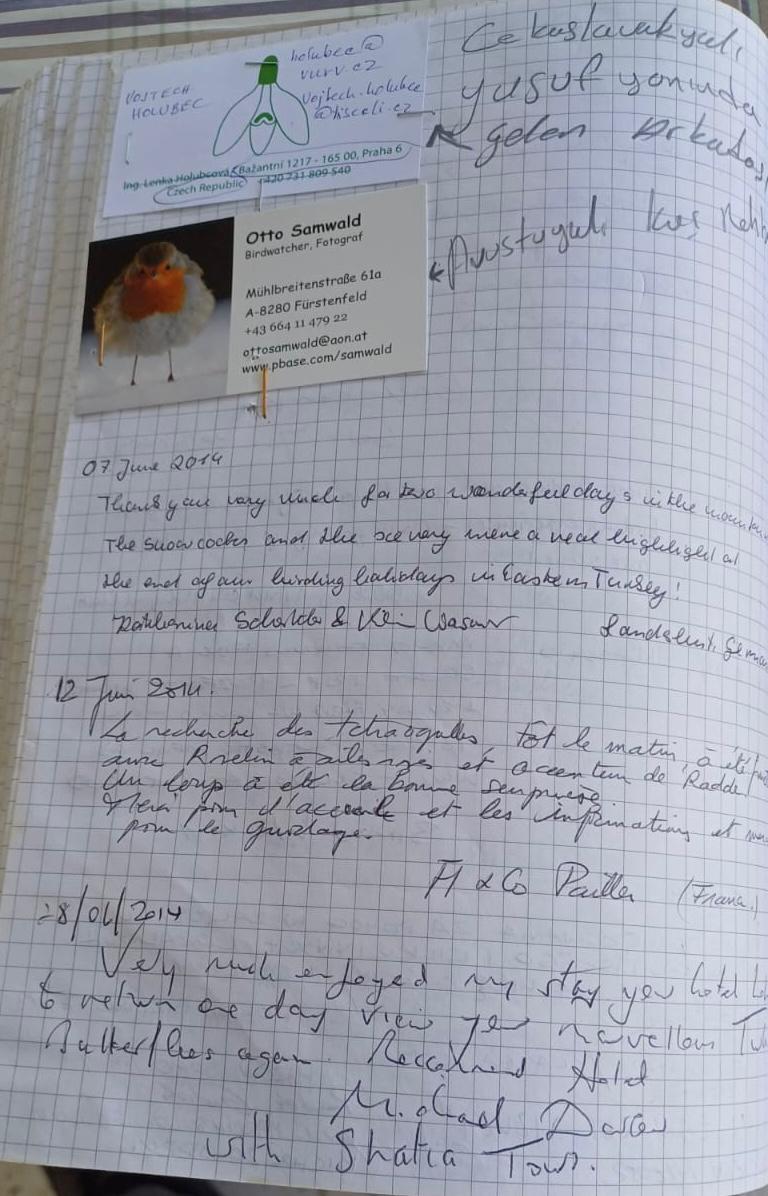 VOJTECH
HOLUBEC
holubec@
vurv.cz
vojtech.holubec
@tiscali.cz
Ing. Lenka Holubcová, Bažantní 1217 - 165 00, Praha 6
Czech Republic +420 731 809 540
yusuf yanında
gelen Arkadaş
Otto Samwald
Birdwatcher, Fotograf
Mühlbreitenstraße 61a
A-8280 Fürstenfeld
+43 664 11 479 22
ottosamwald@aon.at
www.pbase.com/samwald
Avusturyalı kuş
07 June 2014
Thank you very much for two wonderful days in the
The snowcocks and the scenery were a real highlight at
the end of our birding holidays in Eastern Turkey!
& Landshut,
12 Juin 2014.
La recherche des tétraogalles, tôt le matin, a été
avec Roselin à ailes roses et accenteur de Radde
Un loup a été la bonne surprise
Merci pour l'accueil et les informations et
pour le guidage.
(France)
28/06/2014
Very much enjoyed my stay your hotel
to return one day view your marvellous
Butterflies again. Reccomend Hotel
Michael
with Tours.